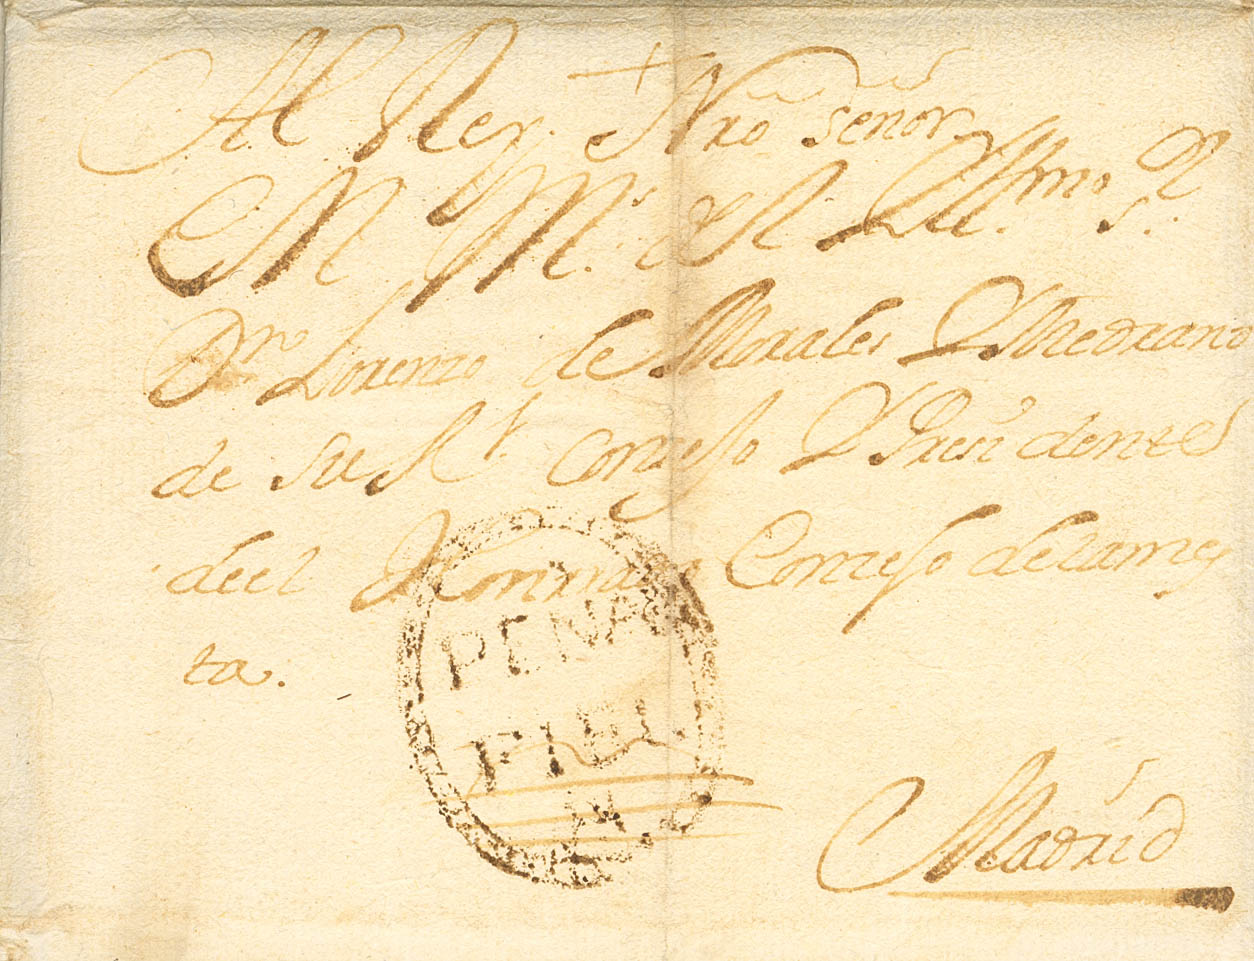 Al Rey. Nro señor
M. M.s de S. Y Illmo. S.r
Dn. Lorenzo de Morales Y Medrano
de su Rl. Consejo Y Presidente
de el Honrrado Concejo de la mes
ta.
PEÑA
FIEL
Madrid